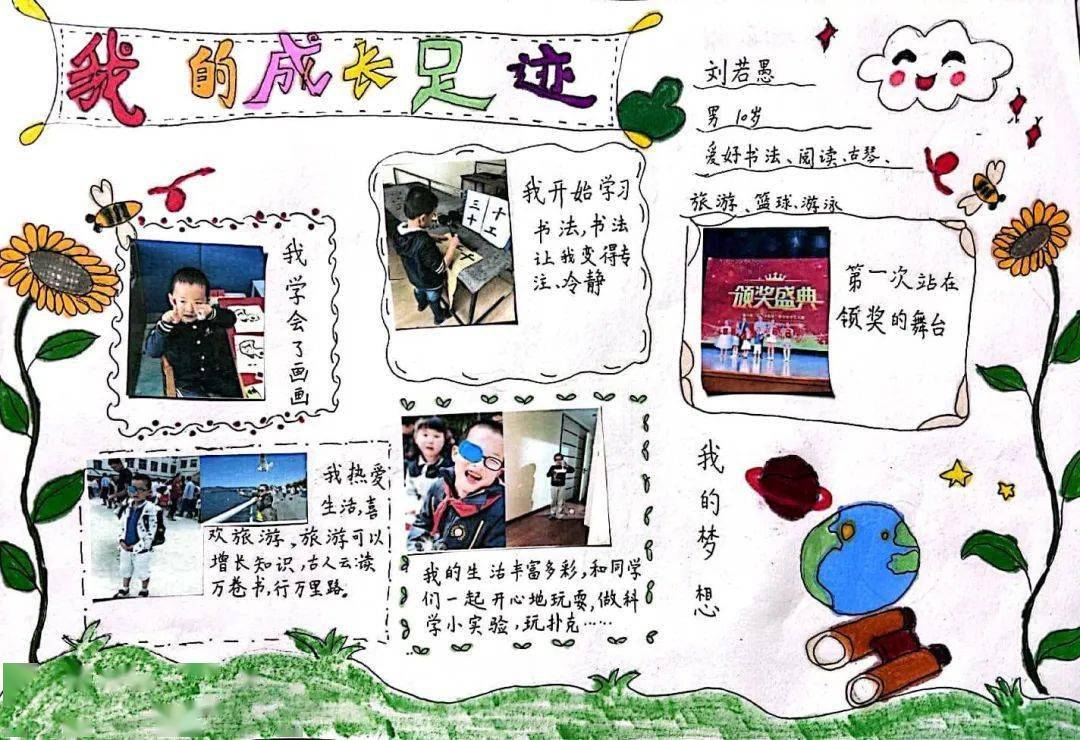 我的成长足迹
刘若愚
男 10岁
爱好书法、阅读、古琴、
旅游、篮球、游泳
我学会了画画
我开始学习
书法,书法
让我变得专
注、冷静
三十
十工
颁奖盛典
第一次站在
领奖的舞台
我热爱
生活,喜
欢旅游,旅游可以
增长知识,古人云:读
万卷书,行万里路。
我的生活丰富多彩,和同学
们一起开心地玩耍,做科
学小实验,玩扑克……
我的梦想